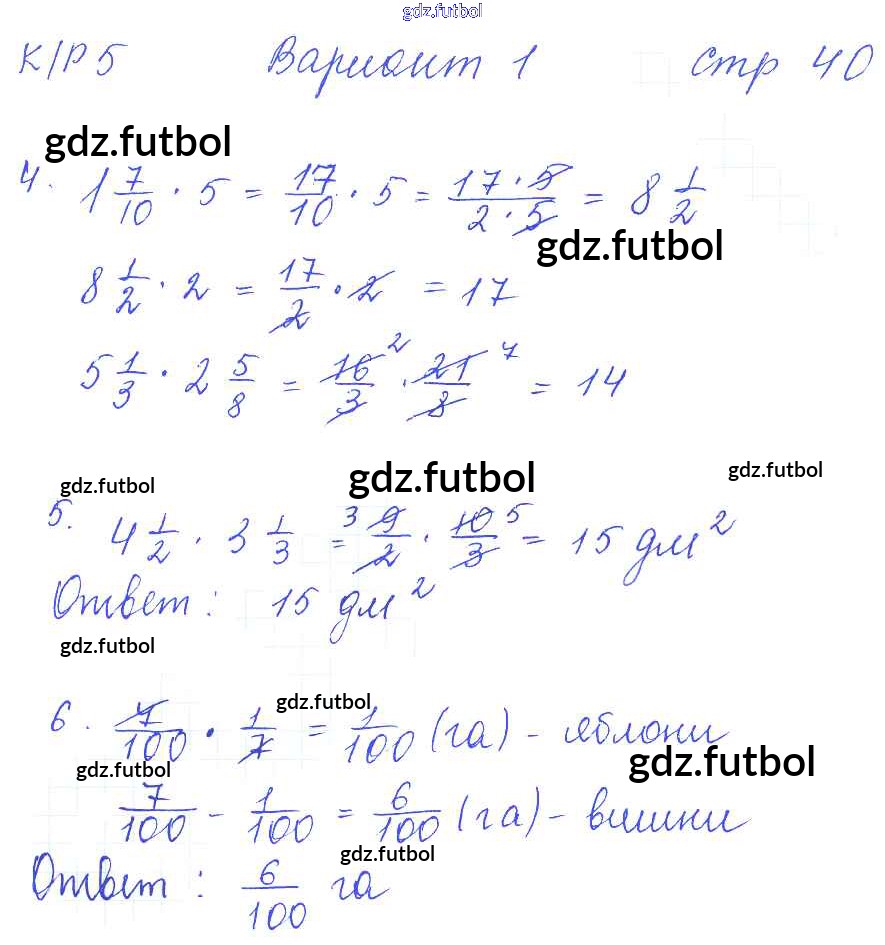 gdz.futbol
К/Р 5 Вариант 1 стр 40
gdz.futbol
4. 1 7/10 · 5 = 17/10 · 5 = 17 · 5/2 · 5 = 8 1/2
gdz.futbol
8 1/2 · 2 = 17/2 · 2 = 17
5 1/3 · 2 5/8 = 16/3 2 · 21/8 7 = 14
gdz.futbol gdz.futbol gdz.futbol
5. 4 1/2 · 3 1/3 = 3 9/2 · 10/3 5 = 15 дм²
Ответ: 15 дм²
gdz.futbol
gdz.futbol
6. 7/100 · 1/7 = 1/100 (га) - яблони
gdz.futbol gdz.futbol
7/100 - 1/100 = 6/100 (га) - вишни
gdz.futbol
Ответ: 6/100 га